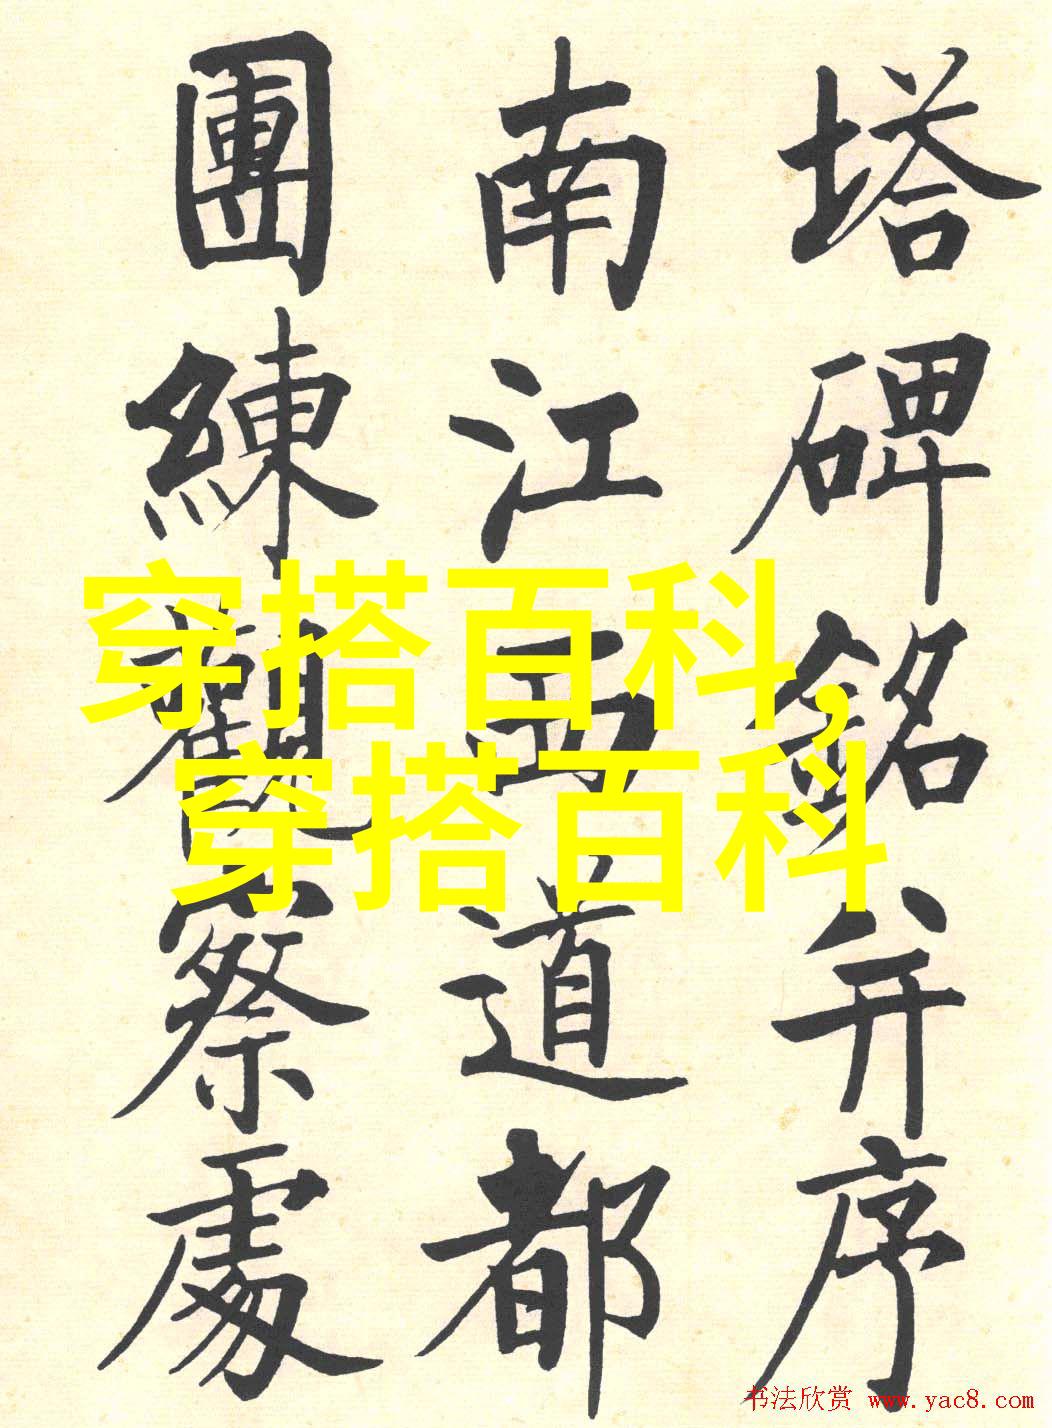 塔碑銘并序
南江西道都
團練觀察處
穿搭百科,
穿搭百科
书法欣赏 www.yac8.com